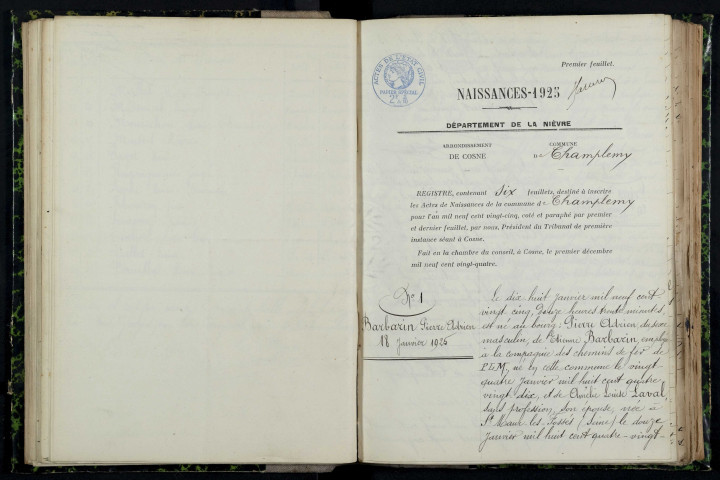 Premier feuillet.
ACTES DE L'ETAT CIVIL
PAPIER SPÉCIAL
NAISSANCES-1925
DÉPARTEMENT DE LA NIÈVRE
ARRONDISSEMENT
DE COSNE
COMMUNE
DE Champlemy
REGISTRE, contenant six feuillets, destiné à inscrire
les Actes de Naissances de la commune de Champlemy
pour l'an mil neuf cent vingt-cinq, coté et paraphé par premier
et dernier feuillet, par nous, Président du Tribunal de première
instance séant à Cosne.
Fait en la chambre du conseil, à Cosne, le premier décembre
mil neuf cent vingt-quatre.
No 1
Barbarin Pierre Adrien
18 Janvier 1925
Le dix huit janvier mil neuf cent
vingt cinq, douze heures trente minutes,
est né au bourg: Pierre Adrien, du sexe
masculin, de Etienne Barbarin, employé
à la compagnie des chemins de fer de
P.L.M, né en cette commune le vingt-
quatre janvier mil huit cent quatre
vingt dix, et de Laval,
sans profession, son épouse, née à
St Maur les Fossés (Seine) le douze
janvier mil huit cent quatre-vingt-